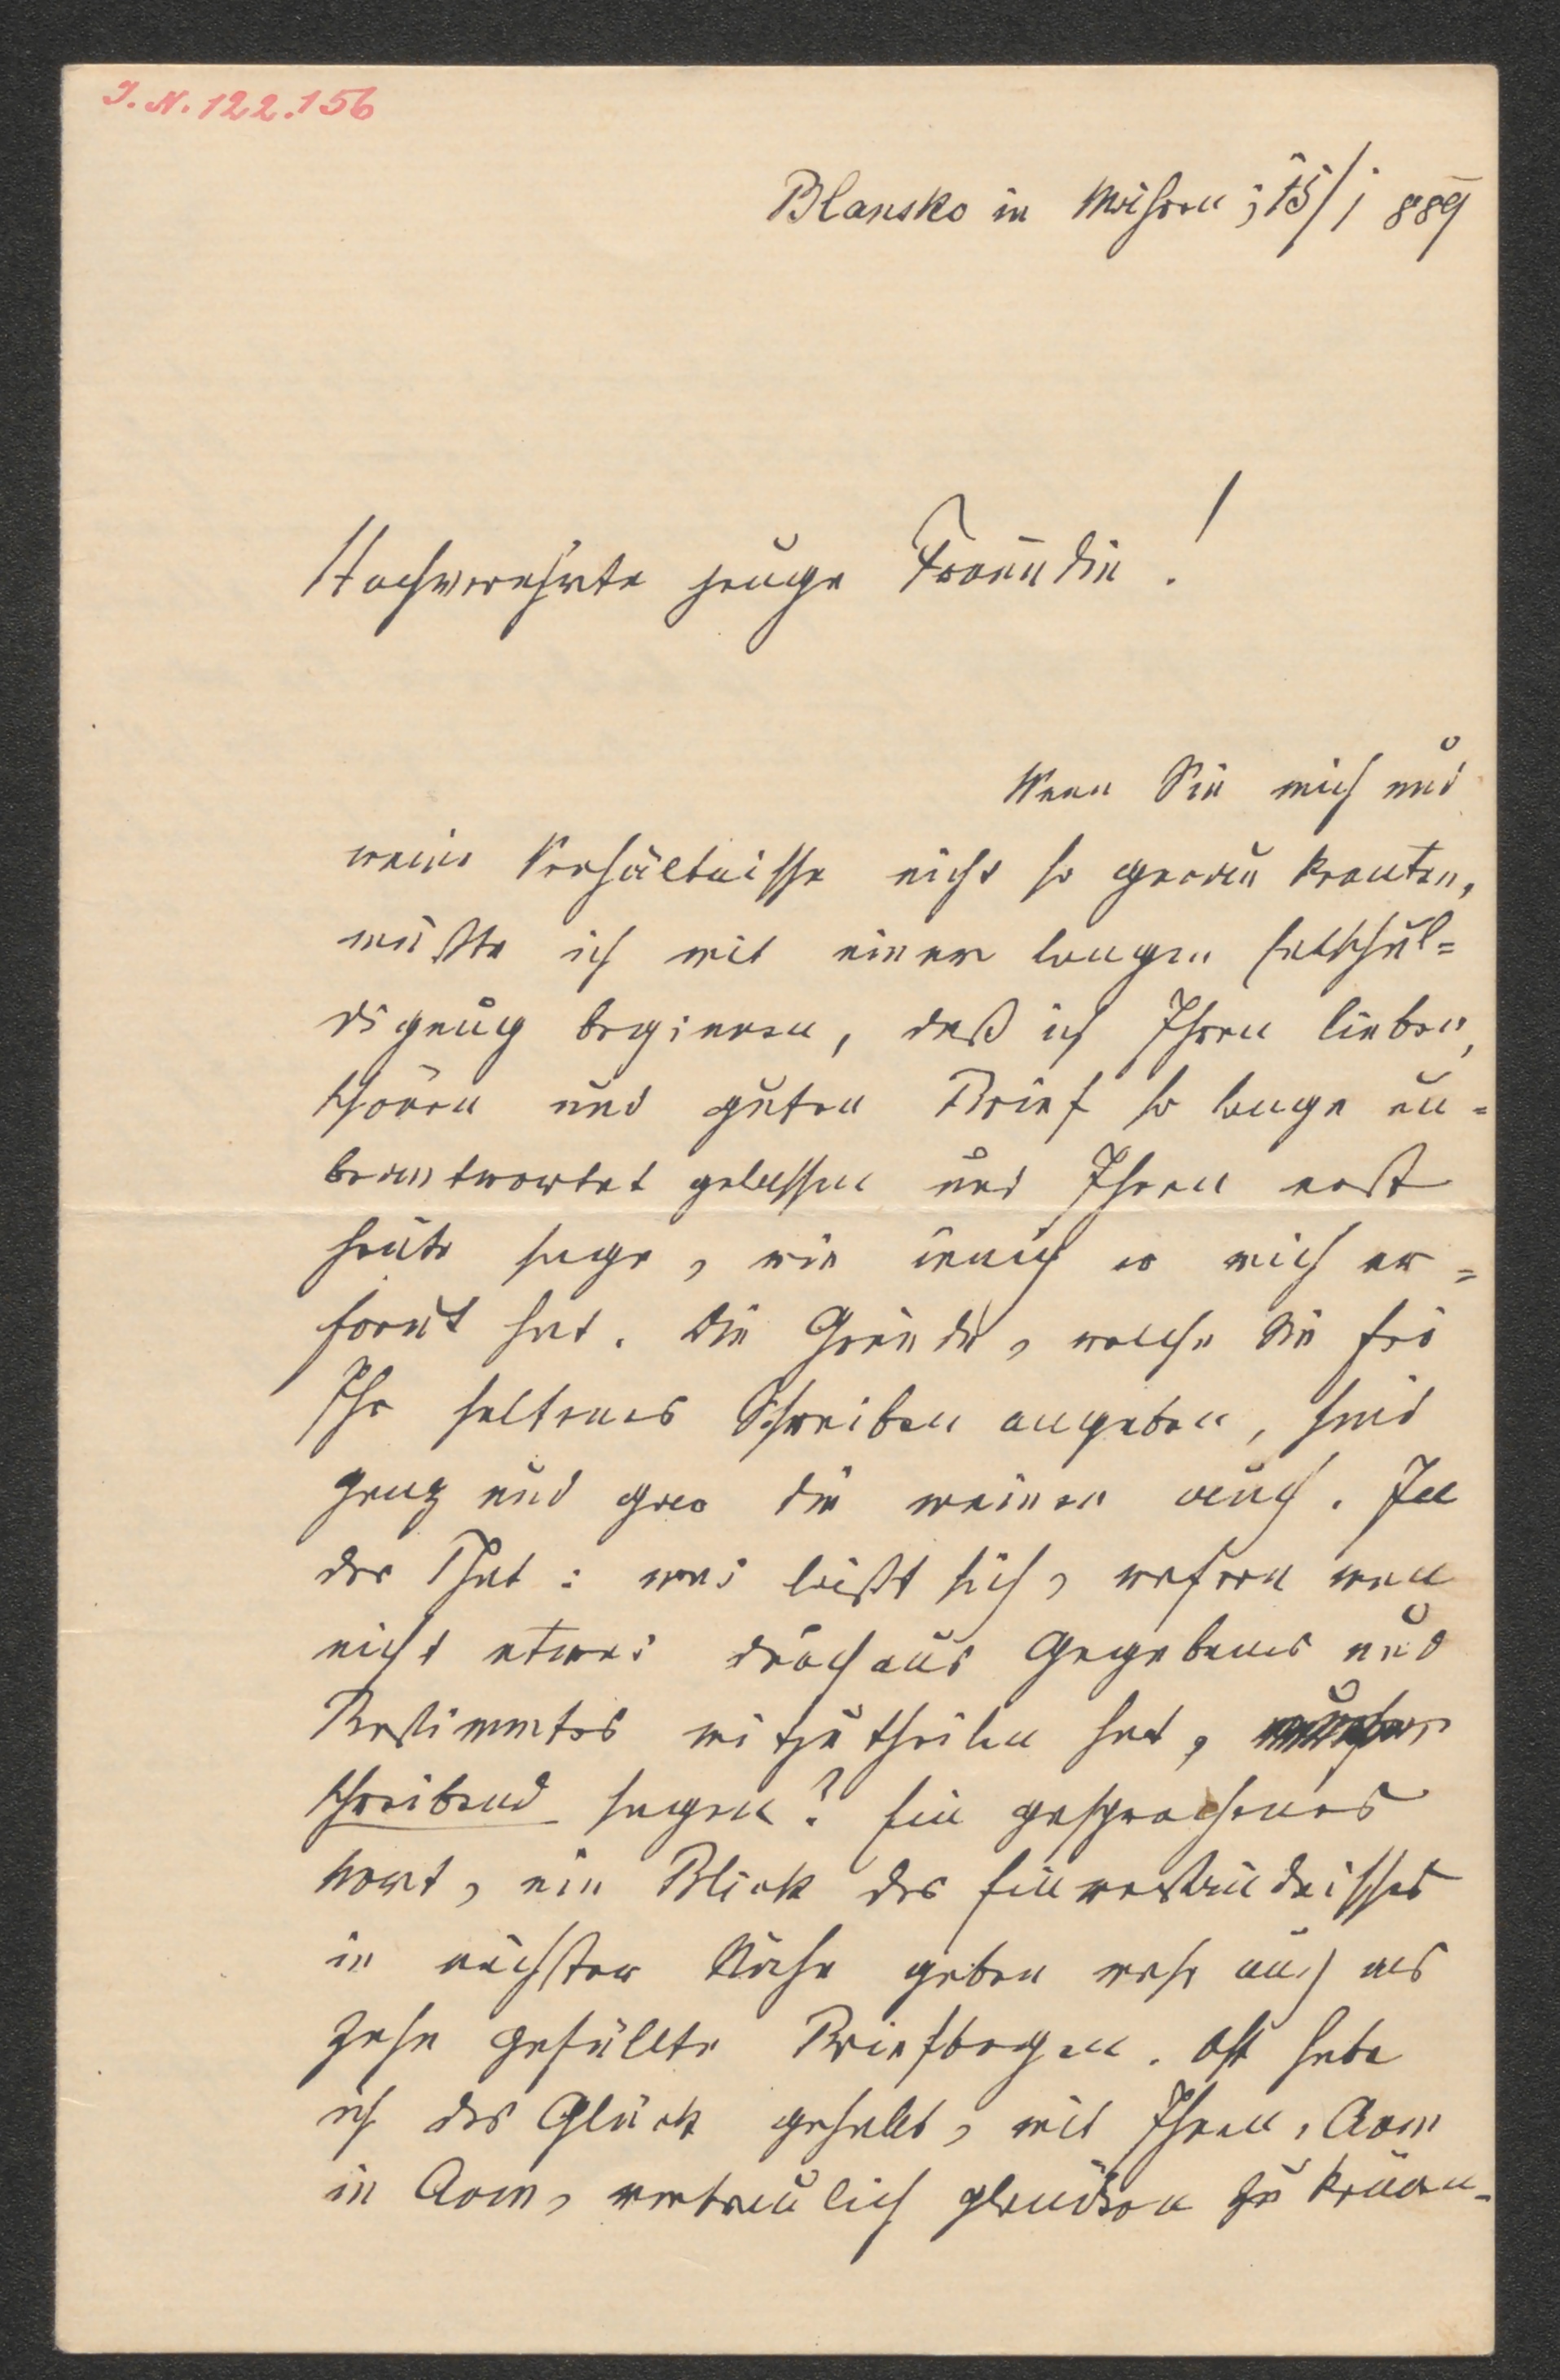 J. N. 122.156
Blansko in Mähren; 15/1 889
Hochverehrte junge Freundin!
Wenn Sie mich und
meine Verhältnisse nicht so genau kennten,
müßte ich mit einer langen Entschul=
digung beginnen, daß ich Ihren lieben,
schönen und guten Brief so lange un=
beantwortet gelassen und Ihnen erst
heute sage, wie innig er mich er=
freut hat. Die Gründe, welche Sie für
Ihr seltenes Schreiben angeben, sind
ganz und gar die meinen auch. In
der That: was läßt sich, wofern man
nicht etwas durchaus Gegebenes und
Bestimmtes mitzutheilen hat,
schreibend sagen? Ein gesprochenes
Wort, ein Blick des Einverständnisses
in nächster Nähe geben mehr aus als
zehn gefüllte Briefbogen. Oft habe
ich das Glück gehabt, mit Ihnen, Arm
in Arm, vertraulich plaudern zu können.